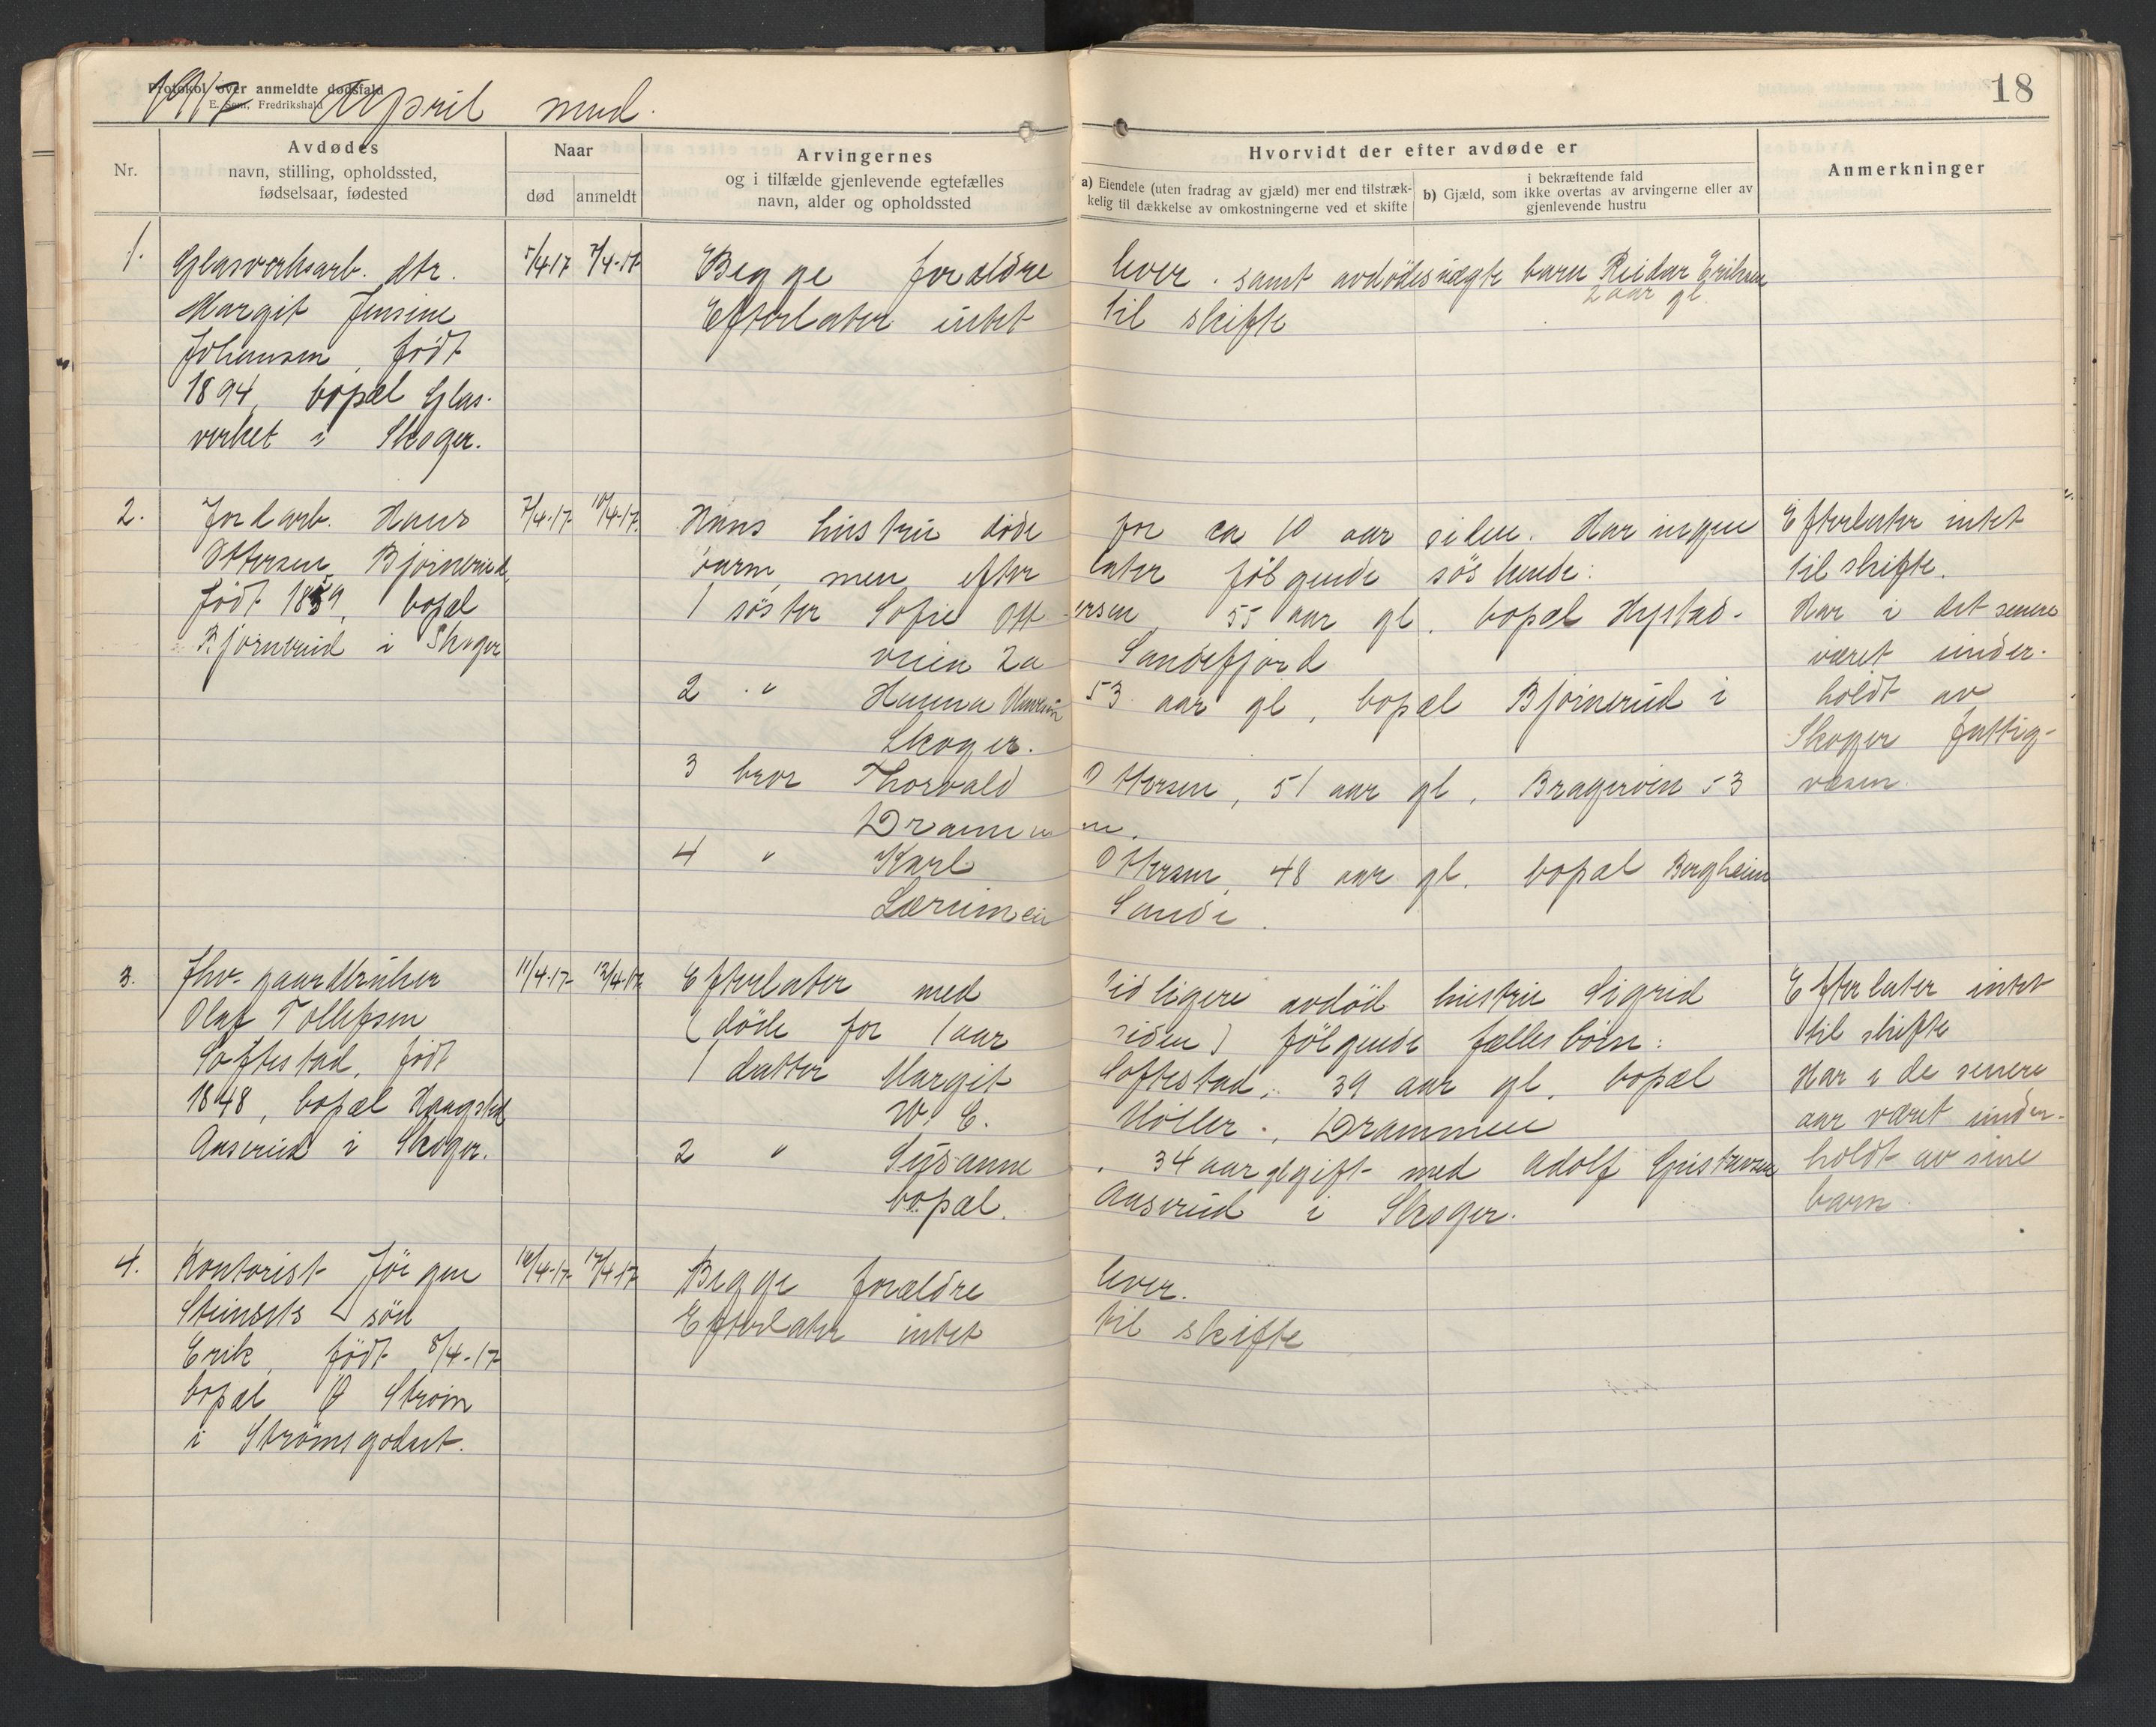 Protokol over anmeldte dødsfald
E. Sem, Fredrikshald
1917 April mnd.
18
Nr.
Avdødes
navn, stilling, opholdssted,
fødselsaar, fødested
Naar
død
anmeldt
Arvingernes
og i tilfælde gjenlevende egtefælles
navn, alder og opholdssted
Hvorvidt der efter avdøde er
a) Eiendele (uten fradrag av gjæld) mer end tilstræk-
kelig til dækkelse av omkostningerne ved et skifte
i bekræftende fald
b) Gjæld, som ikke overtas av arvingerne eller av
gjenlevende hustru
Anmerkninger
1.
Glasverksarb. dtr.
Margit Jensine
Johansen, født
1894, bopæl Glas-
verket i Skoger.
5/4 17 7/4-17
Begge forældre lever. samt avdødes uægte barn Reidar Eriksen
2 aar gl.
Efterlater intet til skifte
2.
Jordarb. Hans
Ottersen Bjørnerud,
født 1859, bopæl
Bjørnerud i Skoger
7/4-17- 10/4-17.
Hans hustru døde for ca 10 aar siden. Har ingen
barn, men efterlater følgende søskende:
1 søster Sofie Ottersen, 55 aar gl, bopæl Hystad-
veien 2a Sandefjord
2 " Hanna Hansen 53 aar gl, bopæl Bjørnerud i
Skoger.
3 bror Thorvald Ottersen, 51 aar gl, Bragerøen 53
Drammen.
4 " Karl Ottersen, 48 aar gl. bopæl Bergheim
Lerumeie Sande.
Efterlater intet
til skifte.
Har i det senere
været under-
holdt av
Skoger fattig-
væsen.
3.
Fhv. gaardbruker
Olaf Tollefsen
Softestad, født
1848, bopæl
Aaserud i Skoger.
11/4-17- 13/4-17.
Efterlater med tidligere avdød hustru Sigrid
(døde for 1 aar siden) følgende fællesbørn:
1 datter Margit Softestad, 39 aar gl, bopæl
W. C. Møller, Drammen
2 " Susanne, 34 aar gl gift med Adolf Gustavsen
bopæl. Aaserud i Skoger.
Efterlater intet
til skifte
Har i de senere
aar været under-
holdt av sine
barn.
4.
Kontorist Jørgen
Steinsets søn
Erik, født 8/4-17
bopæl Ø Strøm
i Strømsgodset.
16/4-17- 17/4-17
Begge forældre lever.
Efterlater intet til skifte